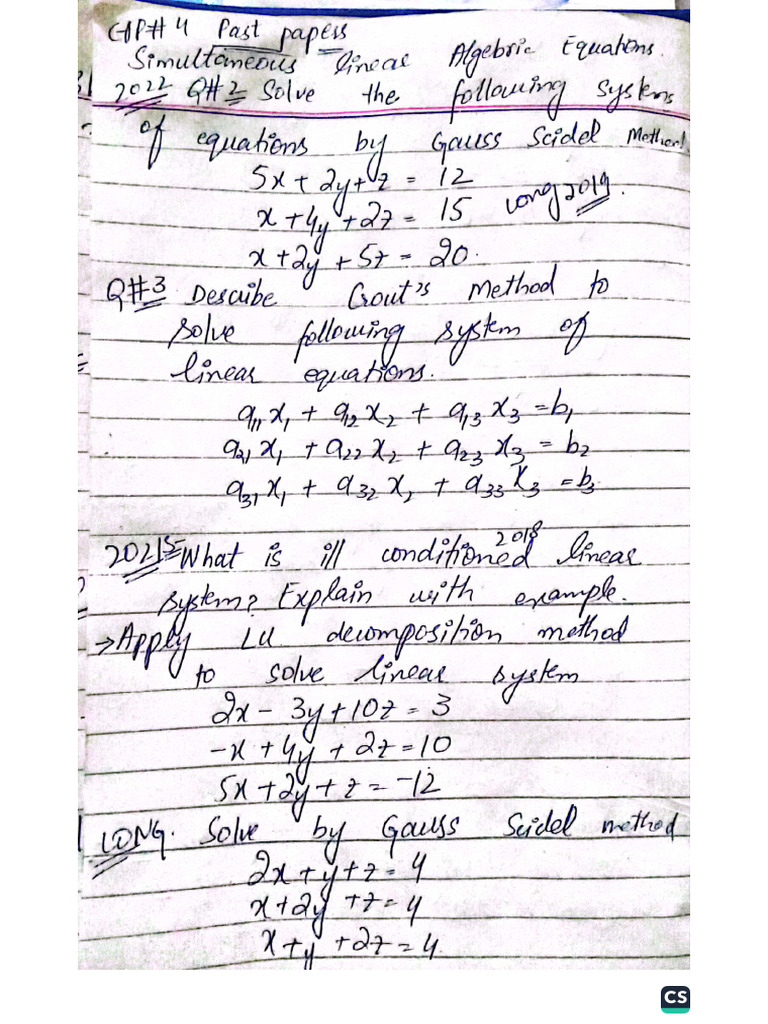 CHP# 4 Past papers
Simultaneous linear Algebric Equations.
2022 Q#2 Solve the following system
of equations by Gauss Seidel Method
5x + 2y + z = 12
x + 4y + 2z = 15 Long 2019.
x + 2y + 5z = 20.
Q#3 Describe Crout's Method to
solve following system of
linear equations.
a11x1 + a12x2 + a13x3 = b1
a21x1 + a22x2 + a23x3 = b2
a31x1 + a32x2 + a33x3 = b3
2018
2021 What is ill conditioned linear
system? Explain with example.
→ Apply LU decomposition method
to solve linear system
2x - 3y + 10z = 3
-x + 4y + 2z = 10
5x + 2y + z = -12
LONG. Solve by Gauss Seidel method
2x + y + z = 4
x + 2y + z = 4
x + y + 2z = 4.
CS